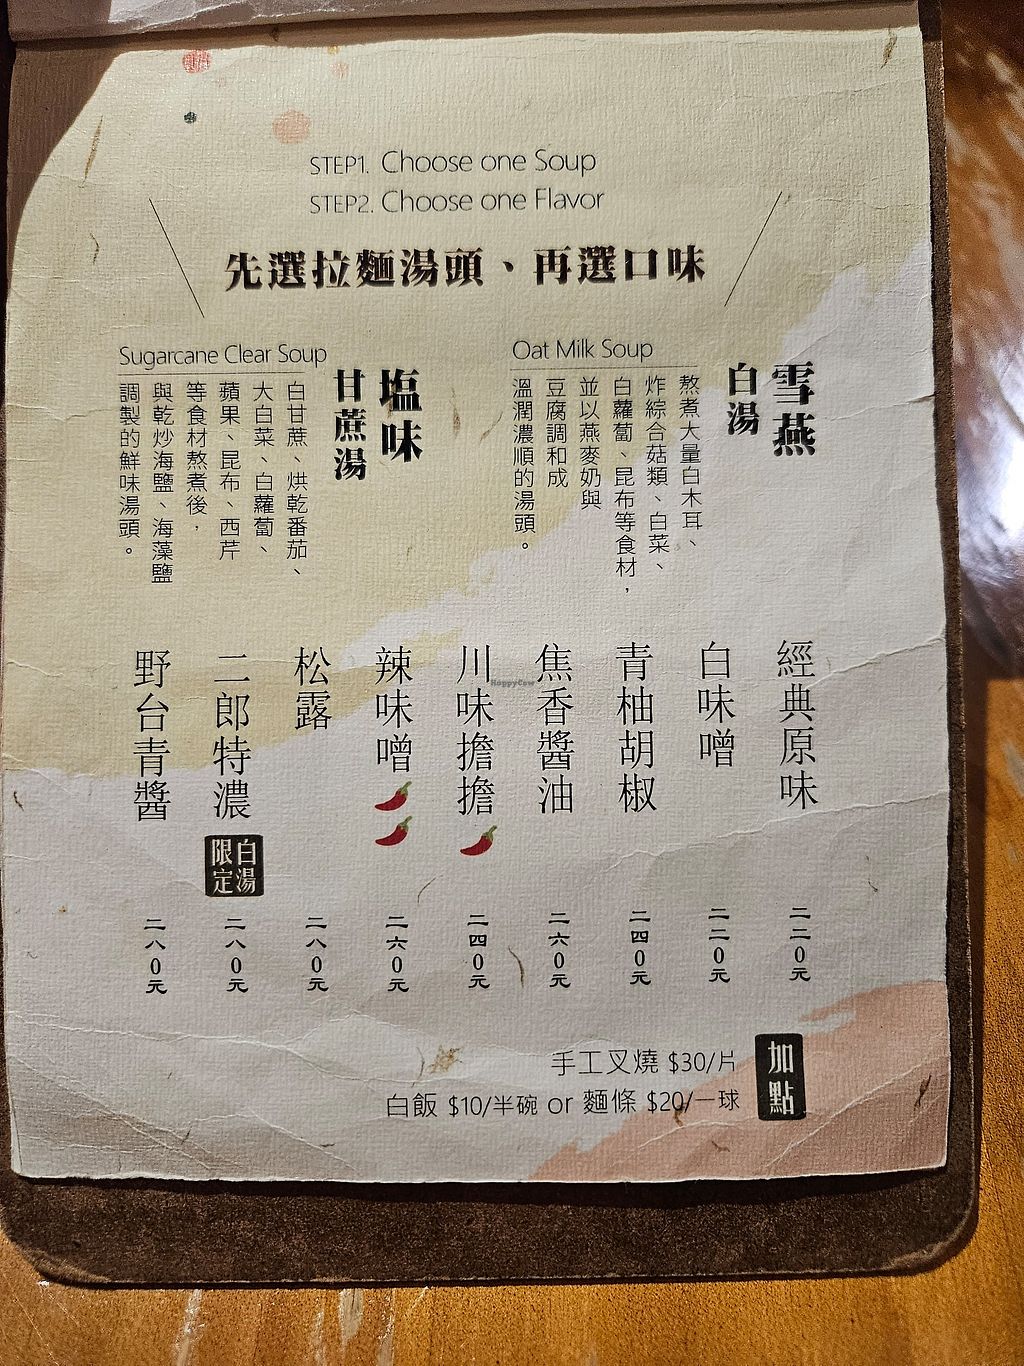 STEP1. Choose one Soup
STEP2. Choose one Flavor
先選拉麵湯頭、再選口味
Oat Milk Soup
雪燕
白湯
熬煮大量白木耳、
炸綜合菇類、白菜、
白蘿蔔、昆布等食材，
並以燕麥奶與
豆腐調和成
溫潤濃順的湯頭。
Sugarcane Clear Soup
塩味
甘蔗湯
白甘蔗、烘乾番茄、
大白菜、白蘿蔔、
蘋果、昆布、西芹
等食材熬煮後，
與乾炒海鹽、海藻鹽
調製的鮮味湯頭。
經典原味
二二0元
白味噌
二二0元
青柚胡椒
二四0元
焦香醬油
二六0元
川味擔擔
二四0元
辣味噌
二六0元
松露
二八0元
二郎特濃
白湯
限定
二八0元
野台青醬
二八0元
加點
手工叉燒 $30/片
白飯 $10/半碗 or 麵條 $20/一球
HappyCow